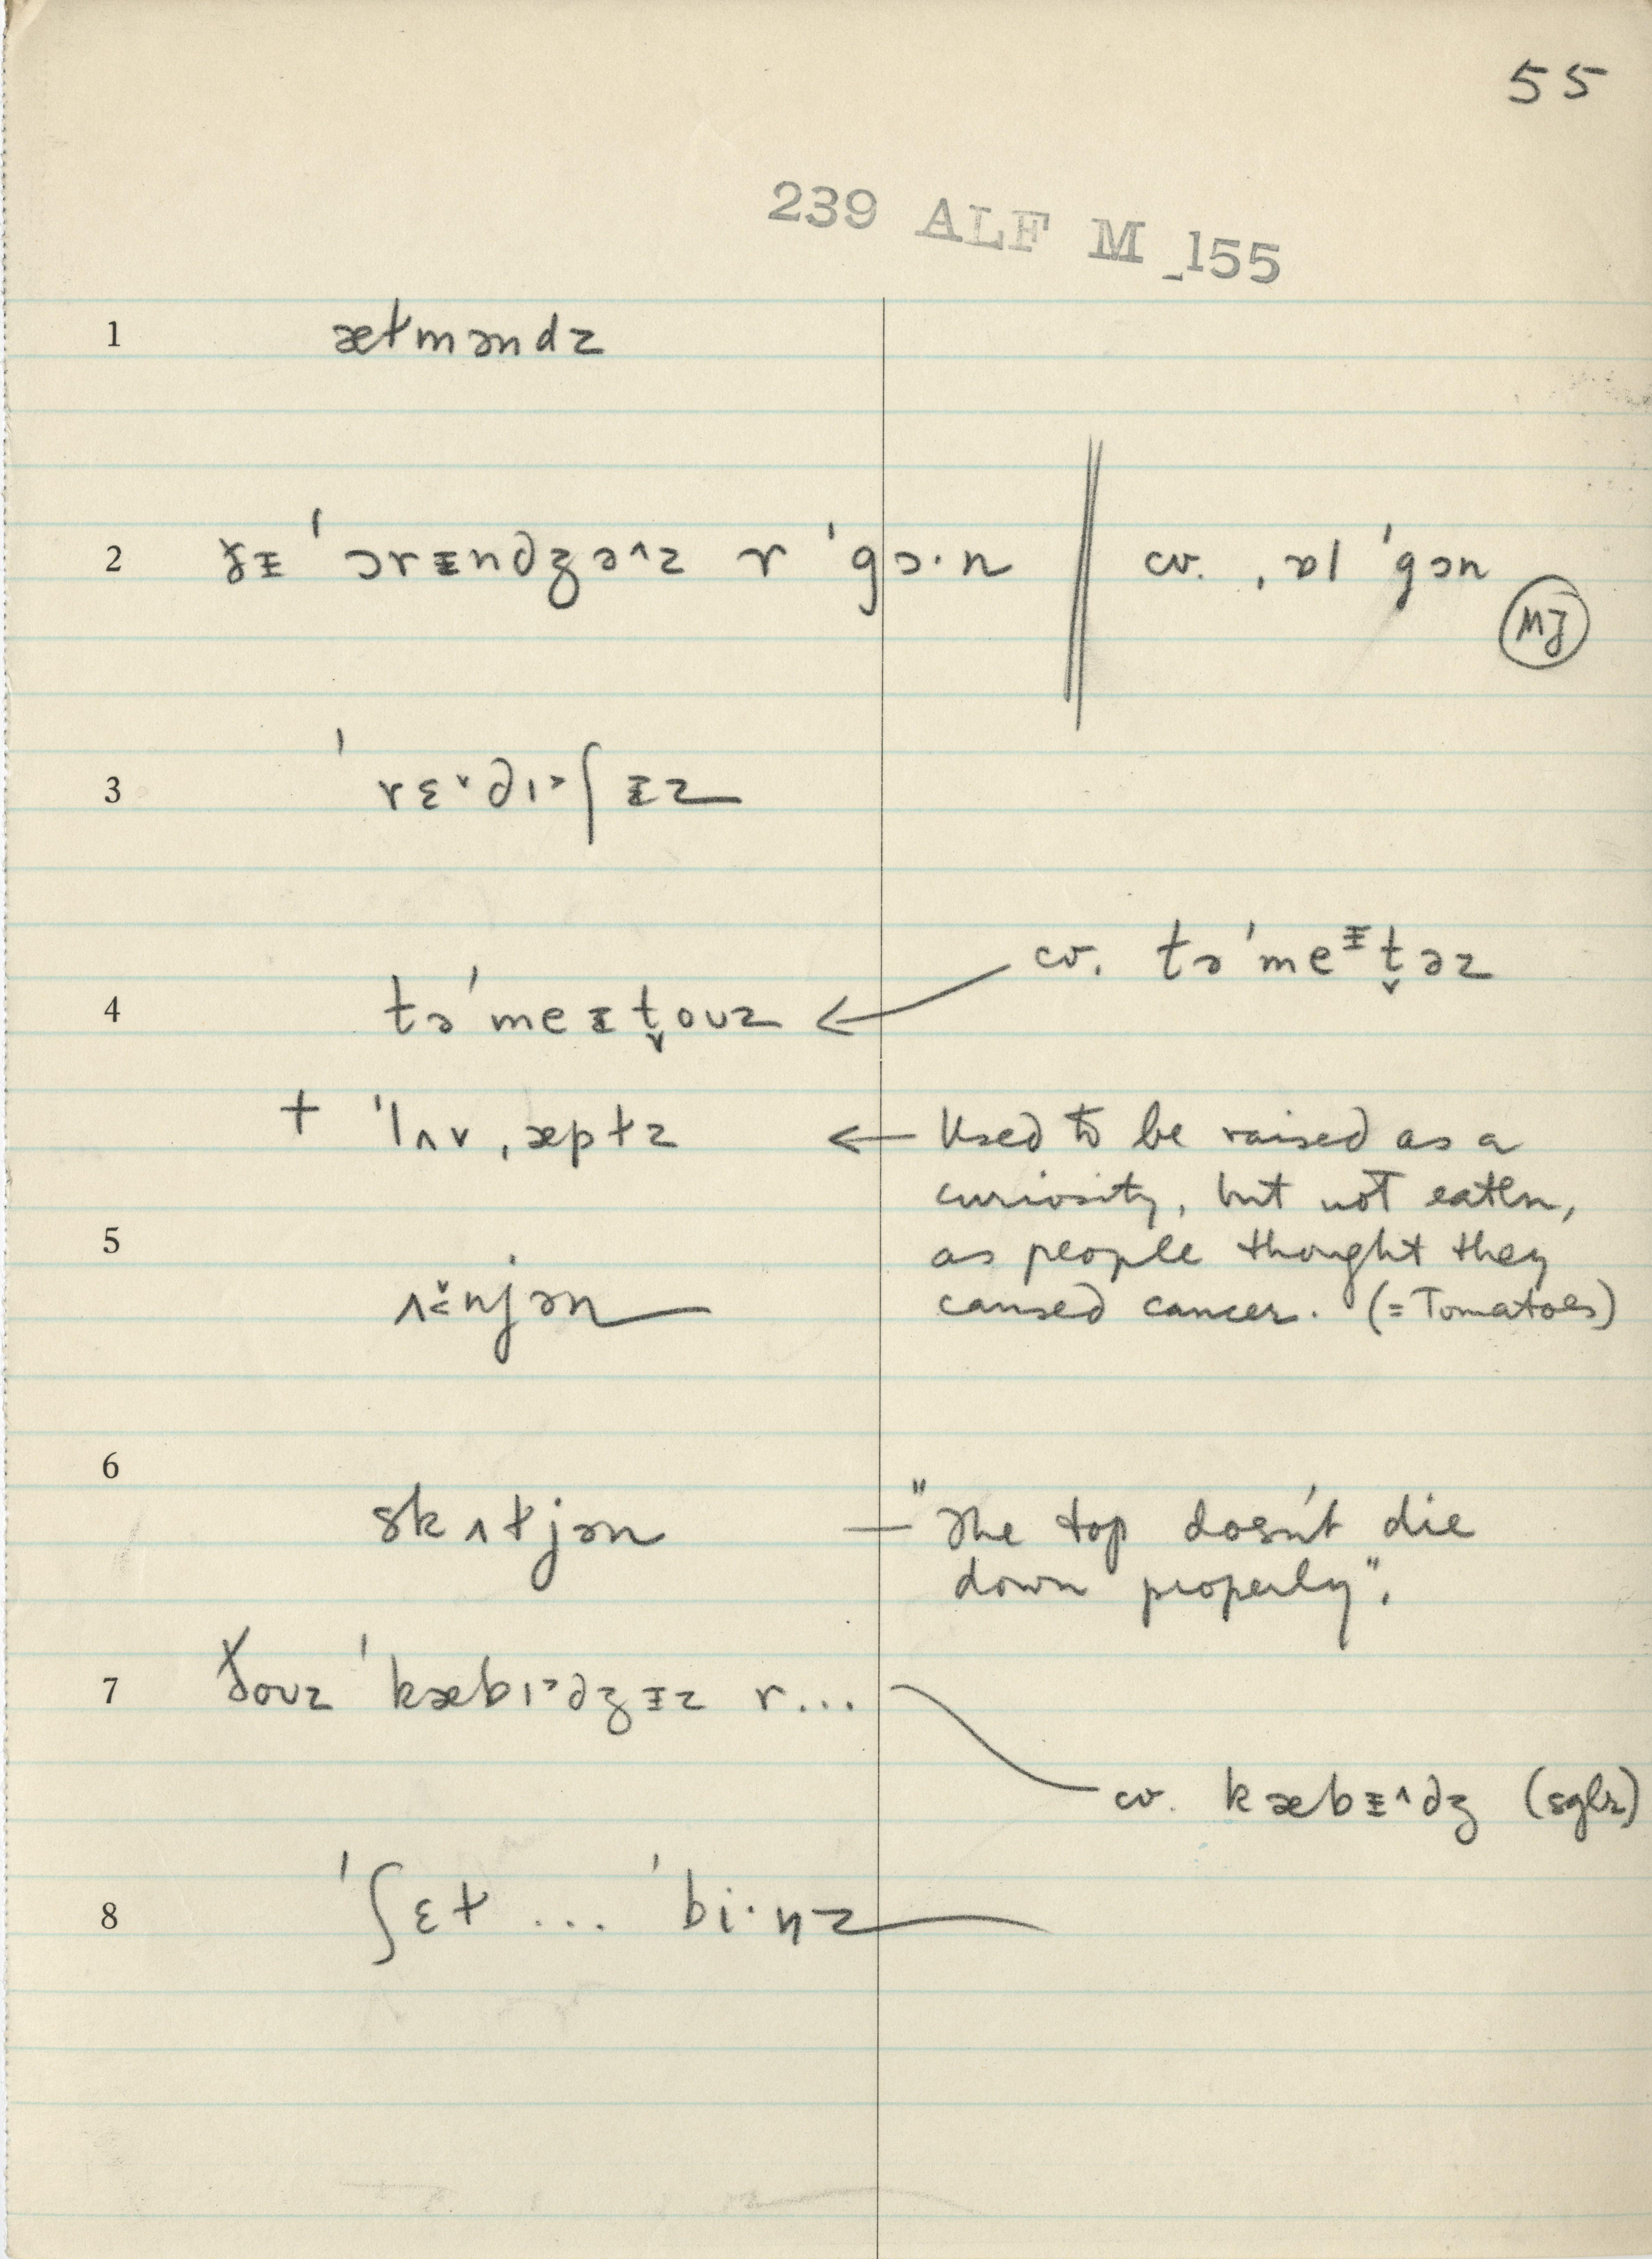 55
239 ALF M_155
1 æɫməndz
2 ðᵻ ˈɔrᵻndʒə^z r ˈgɔ·n cv. ˌɒl ˈgɔn
MJ
3 ˈrɛ˅dɪ˃ʃᵻz
cv. təˈmeᵻt̬əz
4 təˈmeᵻt̬oʊz ←
+ ˈlʌvˌæpɫz ← Used to be raised as a
curiosity, but not eaten,
5 as people thought they
ʌ˂̌njən caused cancer. (= Tomatoes)
6
skʌɫjən — "The top doesn't die
down properly".
7 ðoʊz ˈkæbɪ˃dʒᵻz r...
cv. kæbᵻ^dʒ (sglr)
8 ˈʃɛɫ ... ˈbi·nz